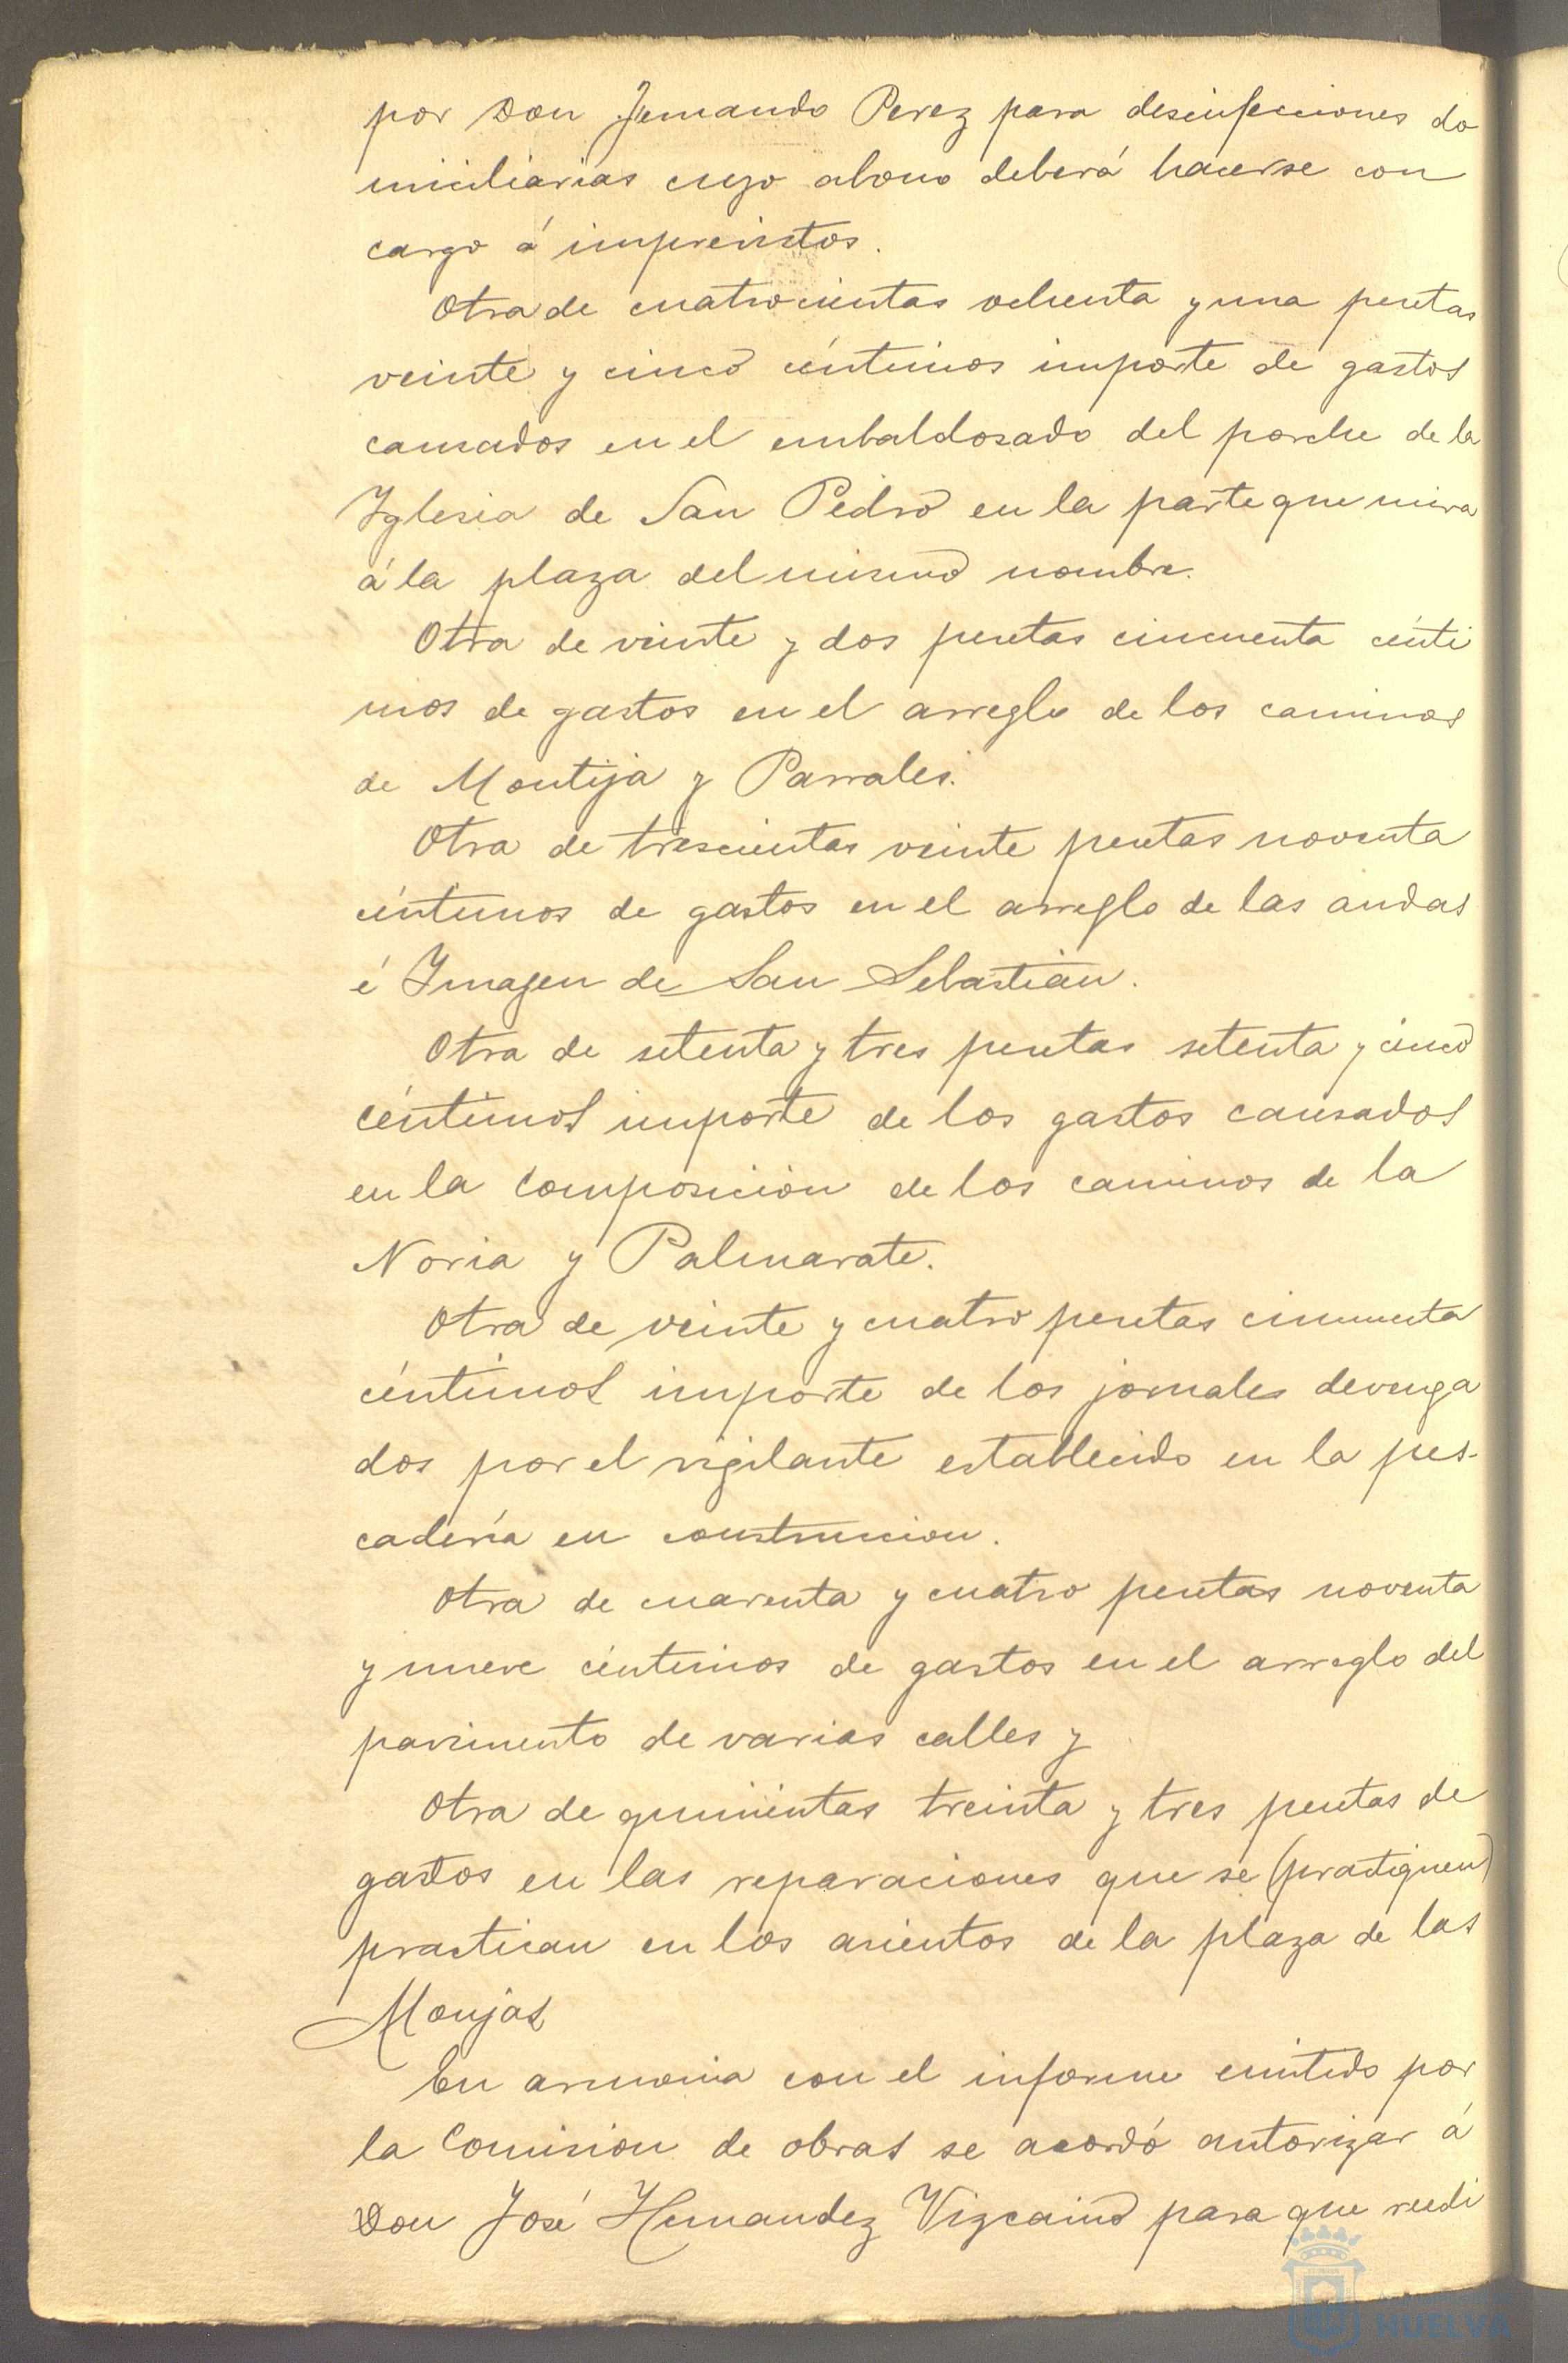 por Don Fernando Perez para desinfecciones do
miciliarias cuyo abono deberá hacerse con
cargo á imprevistos.
Otra de cuatrocientas ochenta y una pesetas
veinte y cinco céntimos importe de gastos
causados en el embaldosado del porche de la
Iglesia de San Pedro en la parte que mira
á la plaza del mismo nombre.
Otra de veinte y dos pesetas cincuenta cénti
mos de gastos en el arreglo de los caminos
de Montija y Parrales.
Otra de trescientas veinte pesetas noventa
céntimos de gastos en el arreglo de las andas
é Imagen de San Sebastián.
Otra de setenta y tres pesetas setenta y cinco
céntimos importe de los gastos causados
en la composición de los caminos de la
Noria y Palmarate.
Otra de veinte y cuatro pesetas cincuenta
céntimos importe de los jornales devenga
dos por el vigilante establecido en la pes-
cadería en construccion.
Otra de cuarenta y cuatro pesetas noventa
y nueve céntimos de gastos en el arreglo del
pavimento de varias calles y
Otra de quinientas treinta y tres pesetas de
gastos en las reparaciones que se (practiquen)
practican en los asientos de la plaza de las
Monjas
En armonia con el informe emitido por
la Comision de obras se acordó autorizar á
Don José Hernandez Vizcaino para que
HUELVA